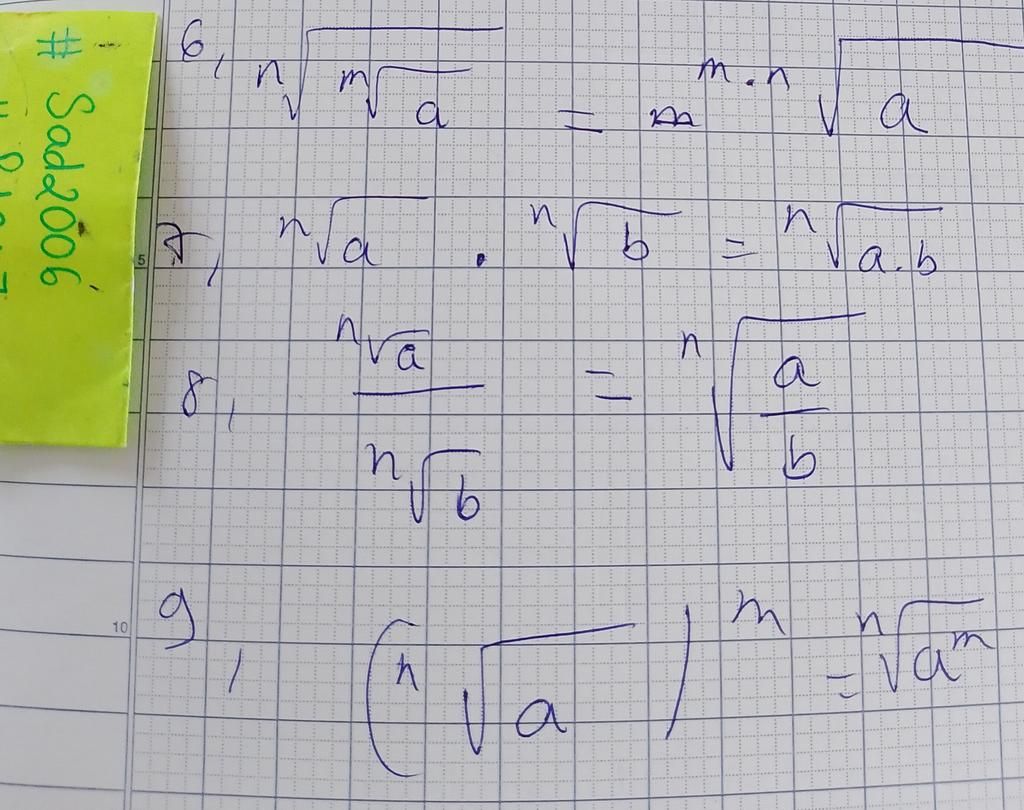 # Sad2006
6, ⁿ√(ᵐ√a) = ᵐ·ⁿ√a
7, ⁿ√a . ⁿ√b = ⁿ√(a.b)
8, ⁿ√a / ⁿ√b = ⁿ√(a/b)
9, (ⁿ√a)ᵐ = ⁿ√(aᵐ)
5
10